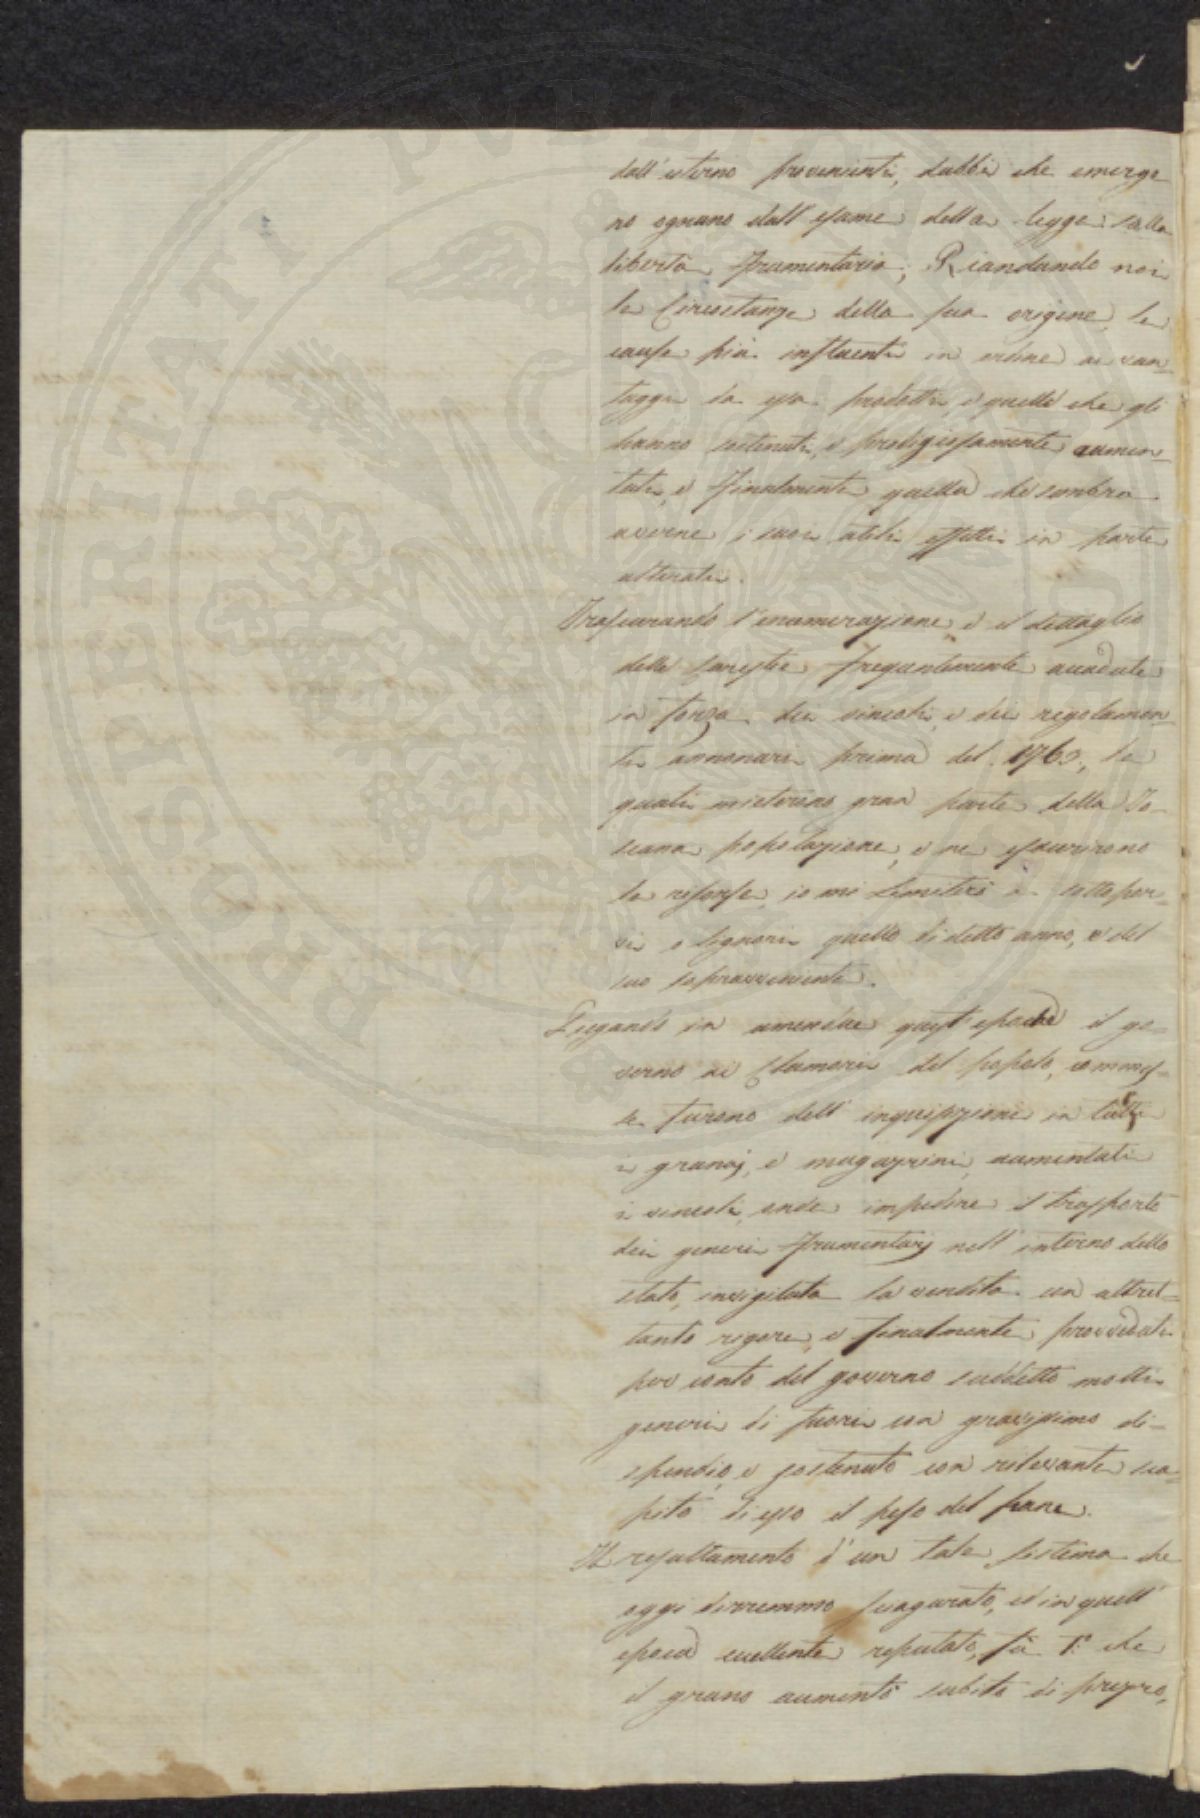 dall'esterno provenienti, dubbi che emergo
no ognuno dall'esame della legge sulla
libertà frumentaria; Riandando noi
le Circostanze della sua origine, le
cause più influenti in ordine ai van=
taggi da essa prodotti, e quelle che gli
hanno sostenuti, e prodigiosamente aumen=
tati, e finalmente quella che sembra
averne i suoi utili effetti in parte
alterati.
Trascurando l'enumerazione, e il dettaglio
delle Carestie frequentemente accadute
in forza dei vincoli, e dei regolamen=
ti annonari prima del 1763, le
quali mieterono gran parte della To=
scana popolazione, e ne esaurirono
le risorse, io mi limiterò a sottopor=
vi o Signori quello di detto anno, e del
suo sopravveniente.
Piegando in amendue quest'epoche il go=
verno ai Clamori del popolo, commes=
se furono dell'inquisizioni in tutti
i granaj, e magazzini, aumentati
i vincoli, onde impedire il trasporto
dei generi frumentarj nell'interno dello
stato, invigilata la vendita con altret=
tanto rigore, e finalmente provveduti
per conto del governo suddetto molti
generi di fuori con gravissimo di=
spendio, e sostenuto con rilevante sca=
pito di esso il peso del pane.
Il resultamento d'un tale sistema che
oggi diremmo sciagurato, ed in quell'
epoca eccellente reputato, fù 1° che
il grano aumentò subito di prezzo,
PROSPERITATI PVBLICAE